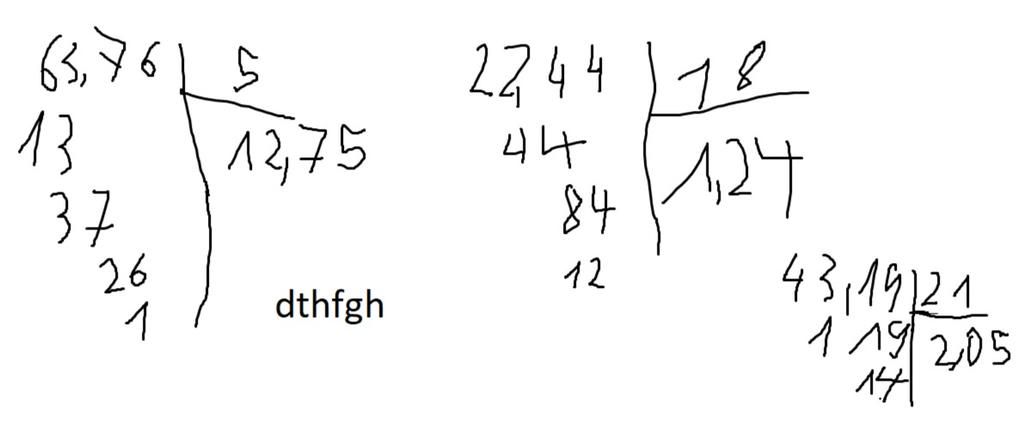 63,76 5
13 12,75
37
26
1
dthfgh
22,44 18
44 1,24
84
12
43,19 21
1 19 2,05
14